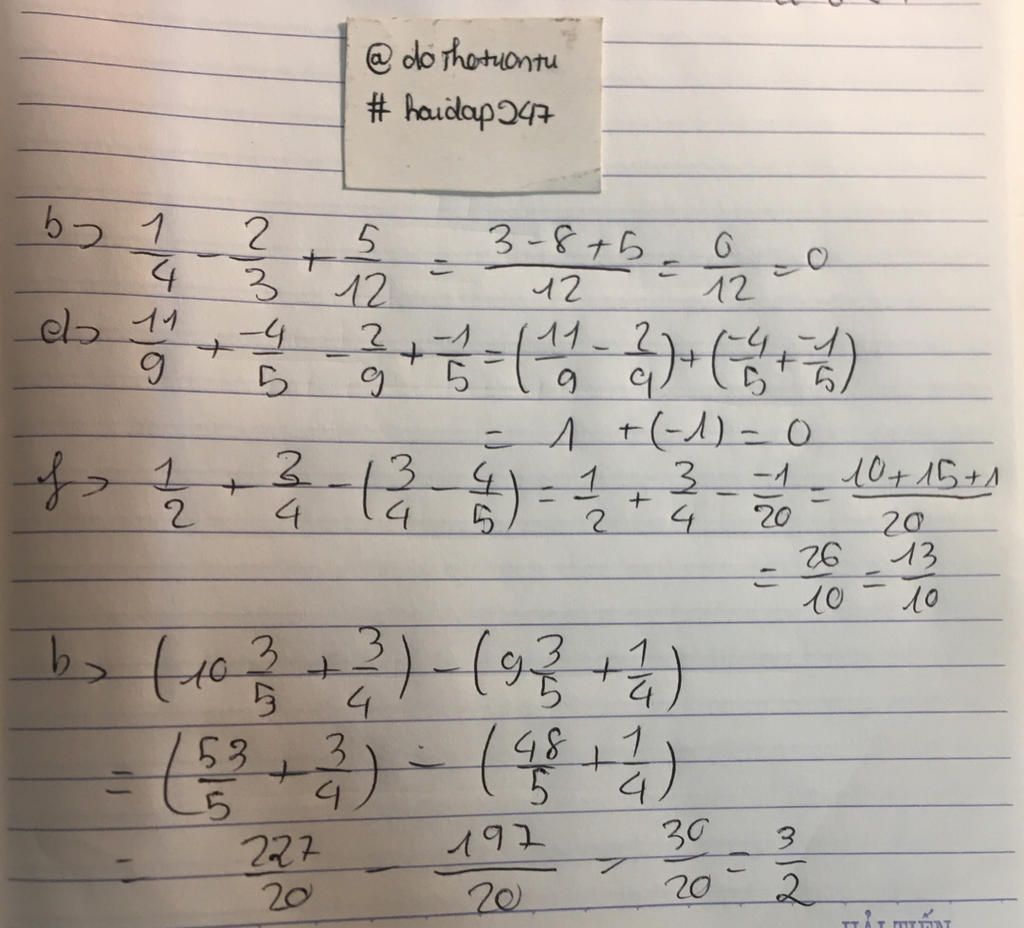 @ dothotuontu
# hoidap247
b> 1/4 - 2/3 + 5/12 = (3 - 8 + 5)/12 = 0/12 = 0
d> 11/9 + -4/5 - 2/9 + -1/5 = (11/9 - 2/9) + (-4/5 + -1/5)
= 1 + (-1) = 0
f> 1/2 + 3/4 - (3/4 - 4/5) = 1/2 + 3/4 - -1/20 = (10 + 15 + 1)/20
= 26/10 = 13/10
b> (10 3/5 + 3/4) - (9 3/5 + 1/4)
= (53/5 + 3/4) - (48/5 + 1/4)
= 227/20 - 197/20 = 30/20 = 3/2
HẢI TIẾN